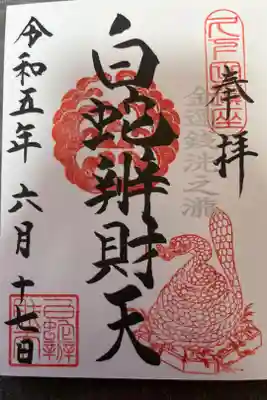 奉拝
金運銭洗之瀧
白蛇辨財天
令和五年 六月 十七日